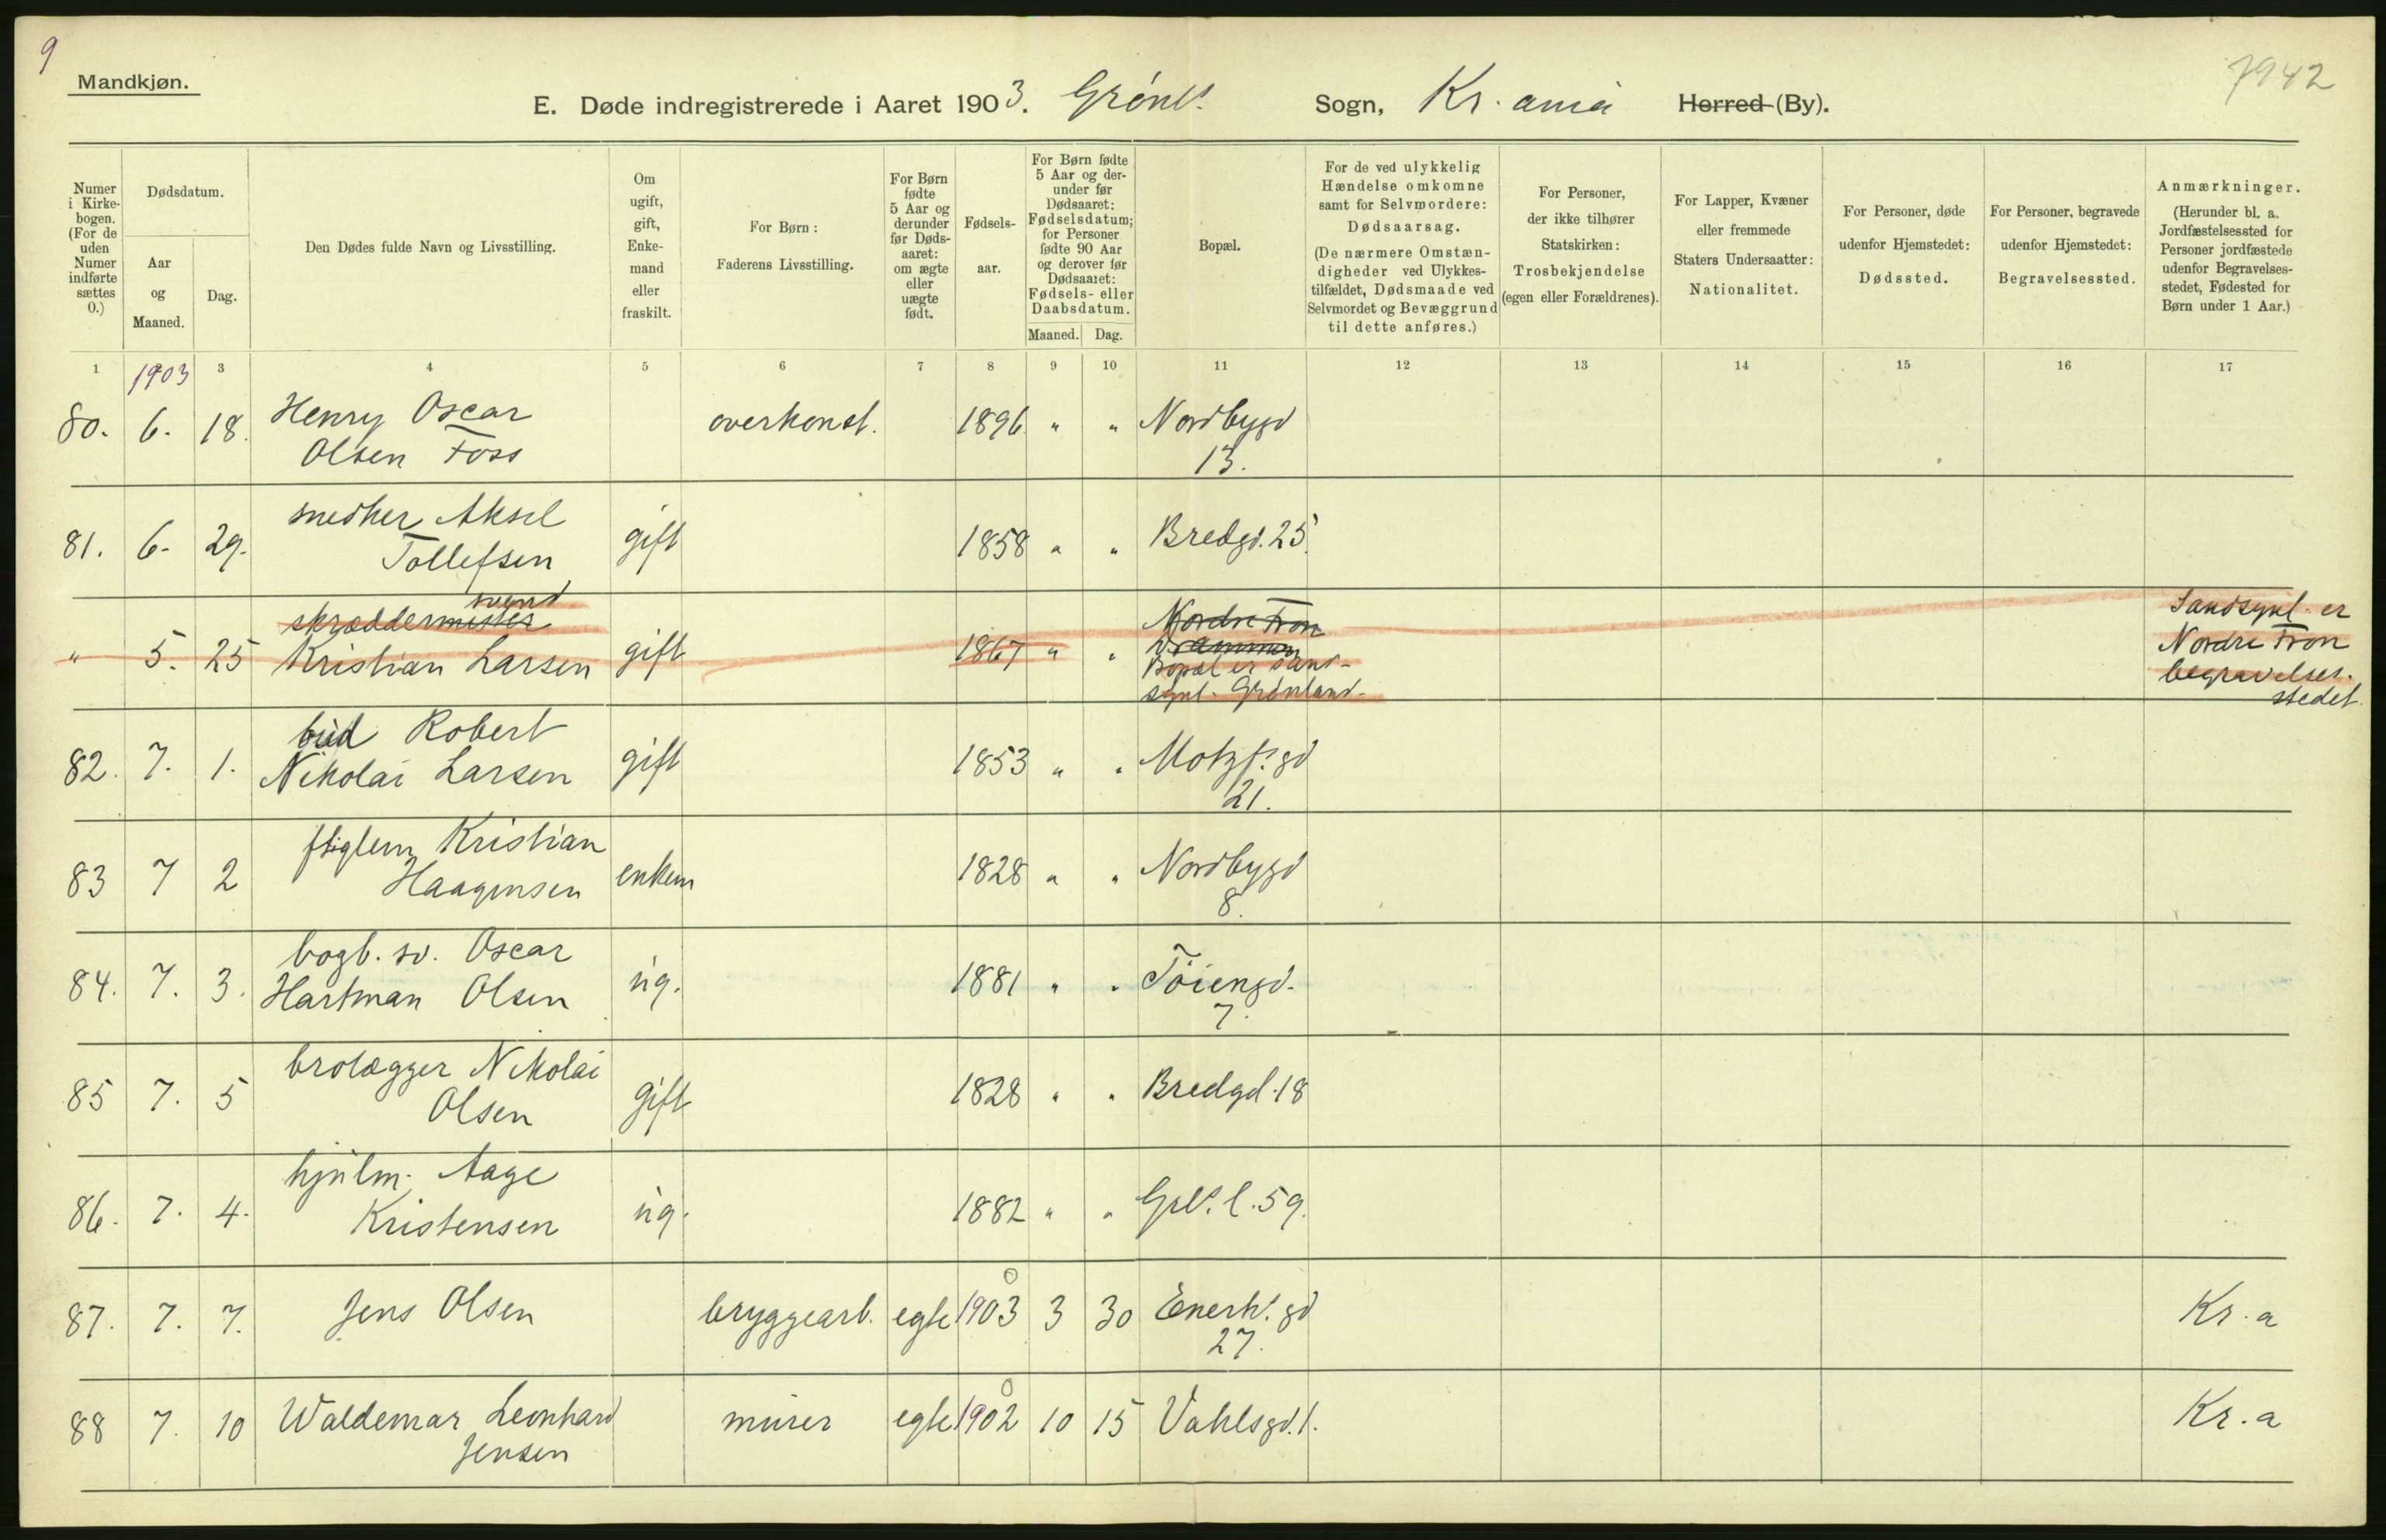 9
Mandkjøn.
7942
E. Døde indregistrerede i Aaret 1903. Grønl. Sogn, Kr.ania Herred (By).
Numer i Kirkebogen. (For de uden Numer indførte sættes 0.)
Dødsdatum.
Aar og Maaned.
Dag.
Den Dødes fulde Navn og Livsstilling.
Om ugift, gift, Enkemand eller fraskilt.
For Børn: Faderens Livsstilling.
For Børn fødte 5 Aar og derunder før Dødsaaret: om ægte eller uægte født.
Fødselsaar.
For Børn fødte 5 Aar og derunder før Dødsaaret: Fødselsdatum; for Personer fødte 90 Aar og derover før Dødsaaret: Fødsels- eller Daabsdatum.
Maaned. Dag.
Bopæl.
For de ved ulykkelig Hændelse omkomne samt for Selvmordere: Dødsaarsag. (De nærmere Omstændigheder ved Ulykkestilfældet, Dødsmaade ved Selvmordet og Bevæggrund til dette anføres.)
For Personer, der ikke tilhører Statskirken: Trosbekjendelse (egen eller Forældrenes).
For Lapper, Kvæner eller fremmede Staters Undersaatter: Nationalitet.
For Personer, døde udenfor Hjemstedet: Dødssted.
For Personer, begravede udenfor Hjemstedet: Begravelsessted.
Anmærkninger. (Herunder bl. a. Jordfæstelsessted for Personer jordfæstede udenfor Begravelsesstedet, Fødested for Børn under 1 Aar.)
1 3 4 5 6 7 8 9 10 11 12 13 14 15 16 17
1903
80. 6. 18. Henry Oscar overkonst. 1896 " " Nordbygd
Olsen Foss 13.
81. 6. 29. snedker Aksel gift 1858 " " Bredgd. 25.
Tollefsen
svend
skræddermester Nordre Fron Sandsynl. er
" 5. 25 Kristian Larsen gift 1867 " " Bopæl er sand- Nordre Fron
synl. Grønland. begravelses-
stedet.
82. 7. 1. bud Robert gift 1853 " " Motzf. gd
Nikolai Larsen 21.
83 7 2 Kristian enkem 1828 " " Nordbygd
Haagensen 8.
84. 7. 3. bogb. sv. Oscar ug. 1881 " " Töiengd.
Hartman Olsen 7.
85 7. 5 brolægger Nikolai gift 1828 " " Bredgd. 18
Olsen
86. 7. 4. hjulm. Aage ug. 1882 " " Grl. l. 59.
Kristensen
0
87. 7. 7. Jens Olsen bryggearb. egte 1903 3 30 Enerh. gd Kr.a
27.
0
88 7. 10 Waldemar Leonhard murer egte 1902 10 15 Vahlsgd. 1. Kr.a
Jensen